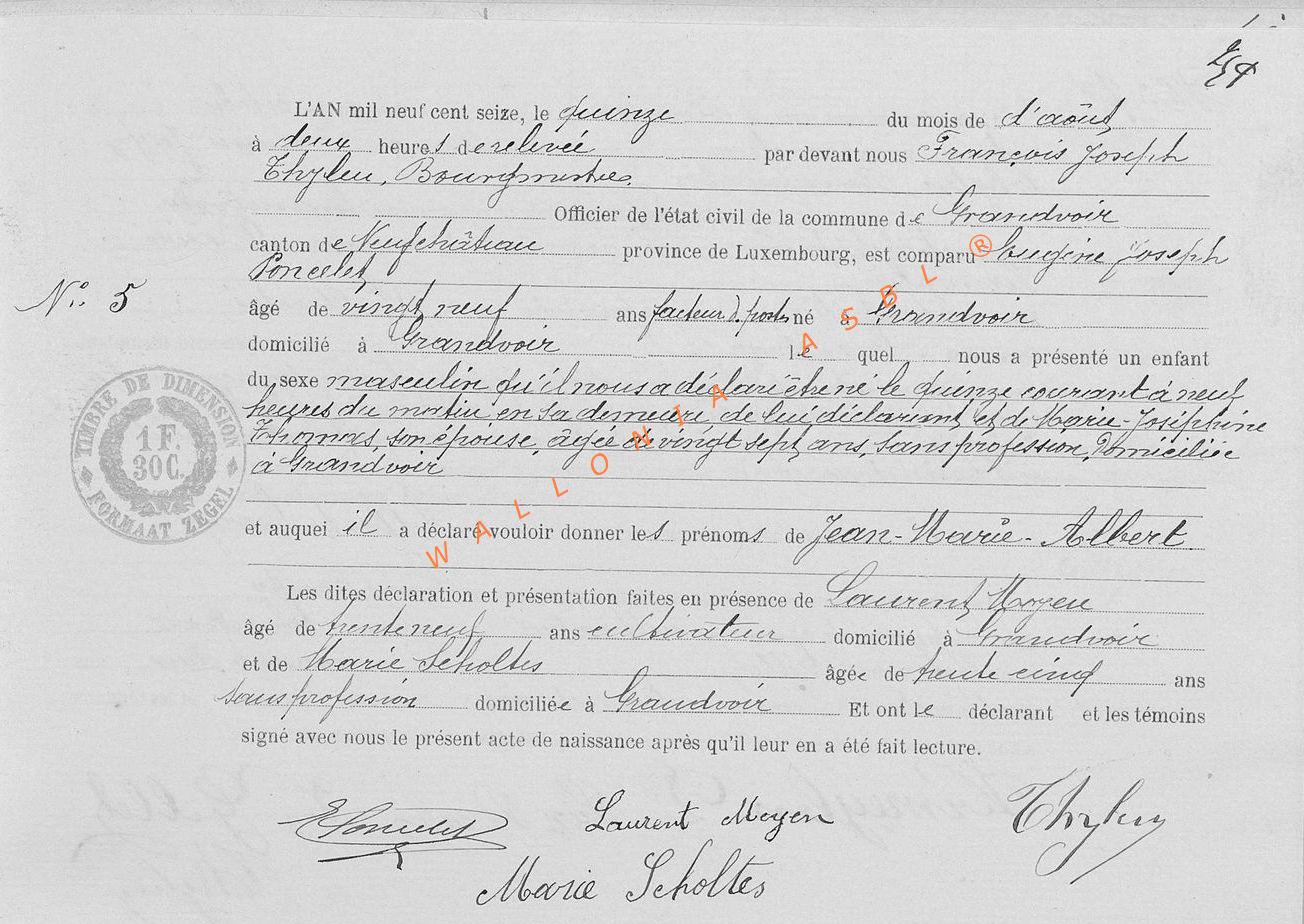 L'AN mil neuf cent seize, le quinze du mois de d'août
à deux heures de relevée par devant nous François Joseph
Bourgmestre.
Officier de l'état civil de la commune de Grandvoir
canton de Neufchâteau province de Luxembourg, est comparu Eugène Joseph
Poncelet,
N° 5
âgé de vingt neuf ans facteur d. postes né à Grandvoir
domicilié à Grandvoir le quel nous a présenté un enfant
du sexe masculin qu'il nous a déclaré être né le quinze courant à neuf
heures du matin en sa demeure, de lui déclarant, et de Marie-Joséphine
Thomas, son épouse, âgée de vingt sept ans, sans profession, domiciliée
à Grandvoir
TIMBRE DE DIMENSION
1 F.
30 C.
FORMAAT ZEGEL
et auquel il a déclaré vouloir donner les prénoms de Jean-Marie-Albert
Les dites déclaration et présentation faites en présence de Laurent Moyen
âgé de trente neuf ans cultivateur domicilié à Grandvoir
et de Marie Scholtes âgée de trente cinq ans
sans profession domiciliée à Grandvoir Et ont le déclarant et les témoins
signé avec nous le présent acte de naissance après qu'il leur en a été fait lecture.
EPoncelet Laurent Moyen
Marie Scholtes
WALLONIA ASBL ®